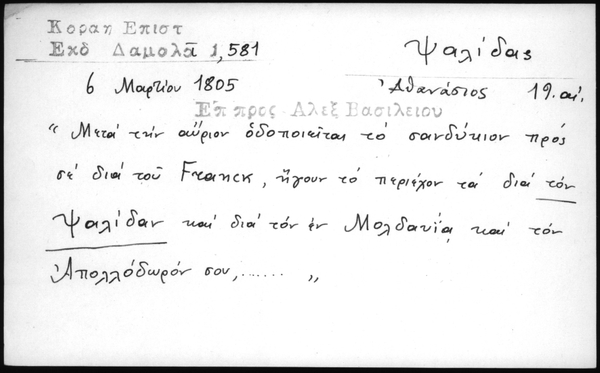 Κοραη Επιστ
Εκδ Δαμολᾶ 1,581
Ψαλίδας
6 Μαρτίου 1805
Ἀθανάσιος 19. αἰ.
Επ προς Αλεξ Βασιλειου
“ Μετὰ τὴν αὔριον ὁδοποιεῖται τὸ σανδύκιον πρὸς
σὲ διὰ τοῦ Franck, ἤγουν τὸ περιέχον τὰ διὰ τὸν
Ψαλίδαν καὶ διὰ τὸν ἐν Μολδαυίᾳ καὶ τὸν
Ἀπολλόδωρόν σου, ....... „